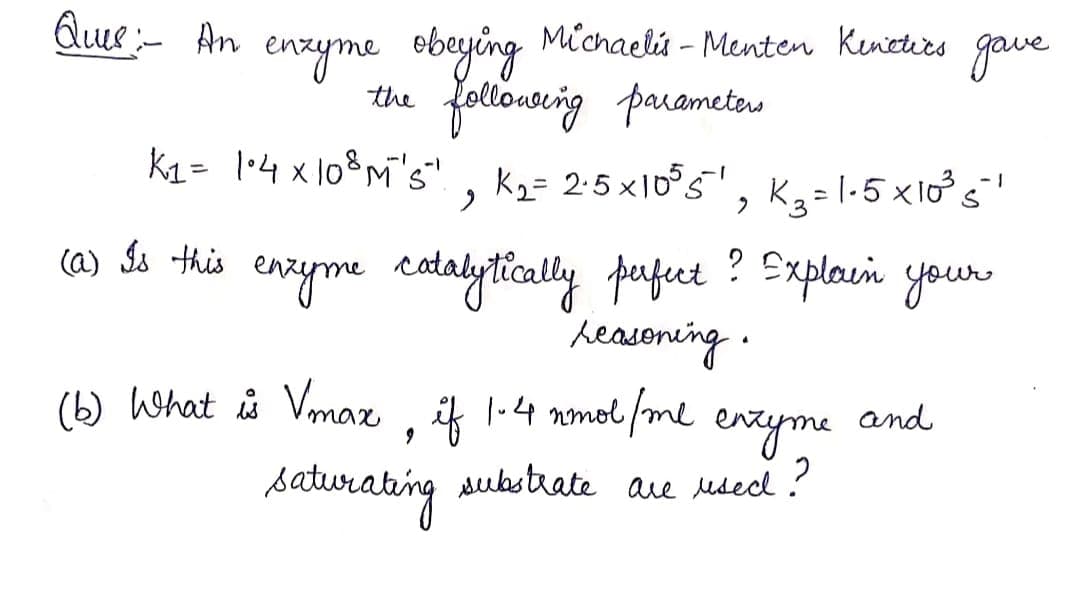 Ques:- An enzyme obeying Michaelis - Menten Kinetics gave
the following parameters
K₁ = 1·4 x 10⁸ M⁻¹s⁻¹, K₂ = 2·5 x10⁵ s⁻¹, K₃ = 1·5 x10³ s⁻¹
(a) Is this enzyme catalytically perfect? Explain your
reasoning.
(b) What is Vmax, if 1·4 nmol/ml enzyme and
saturating substrate are used?